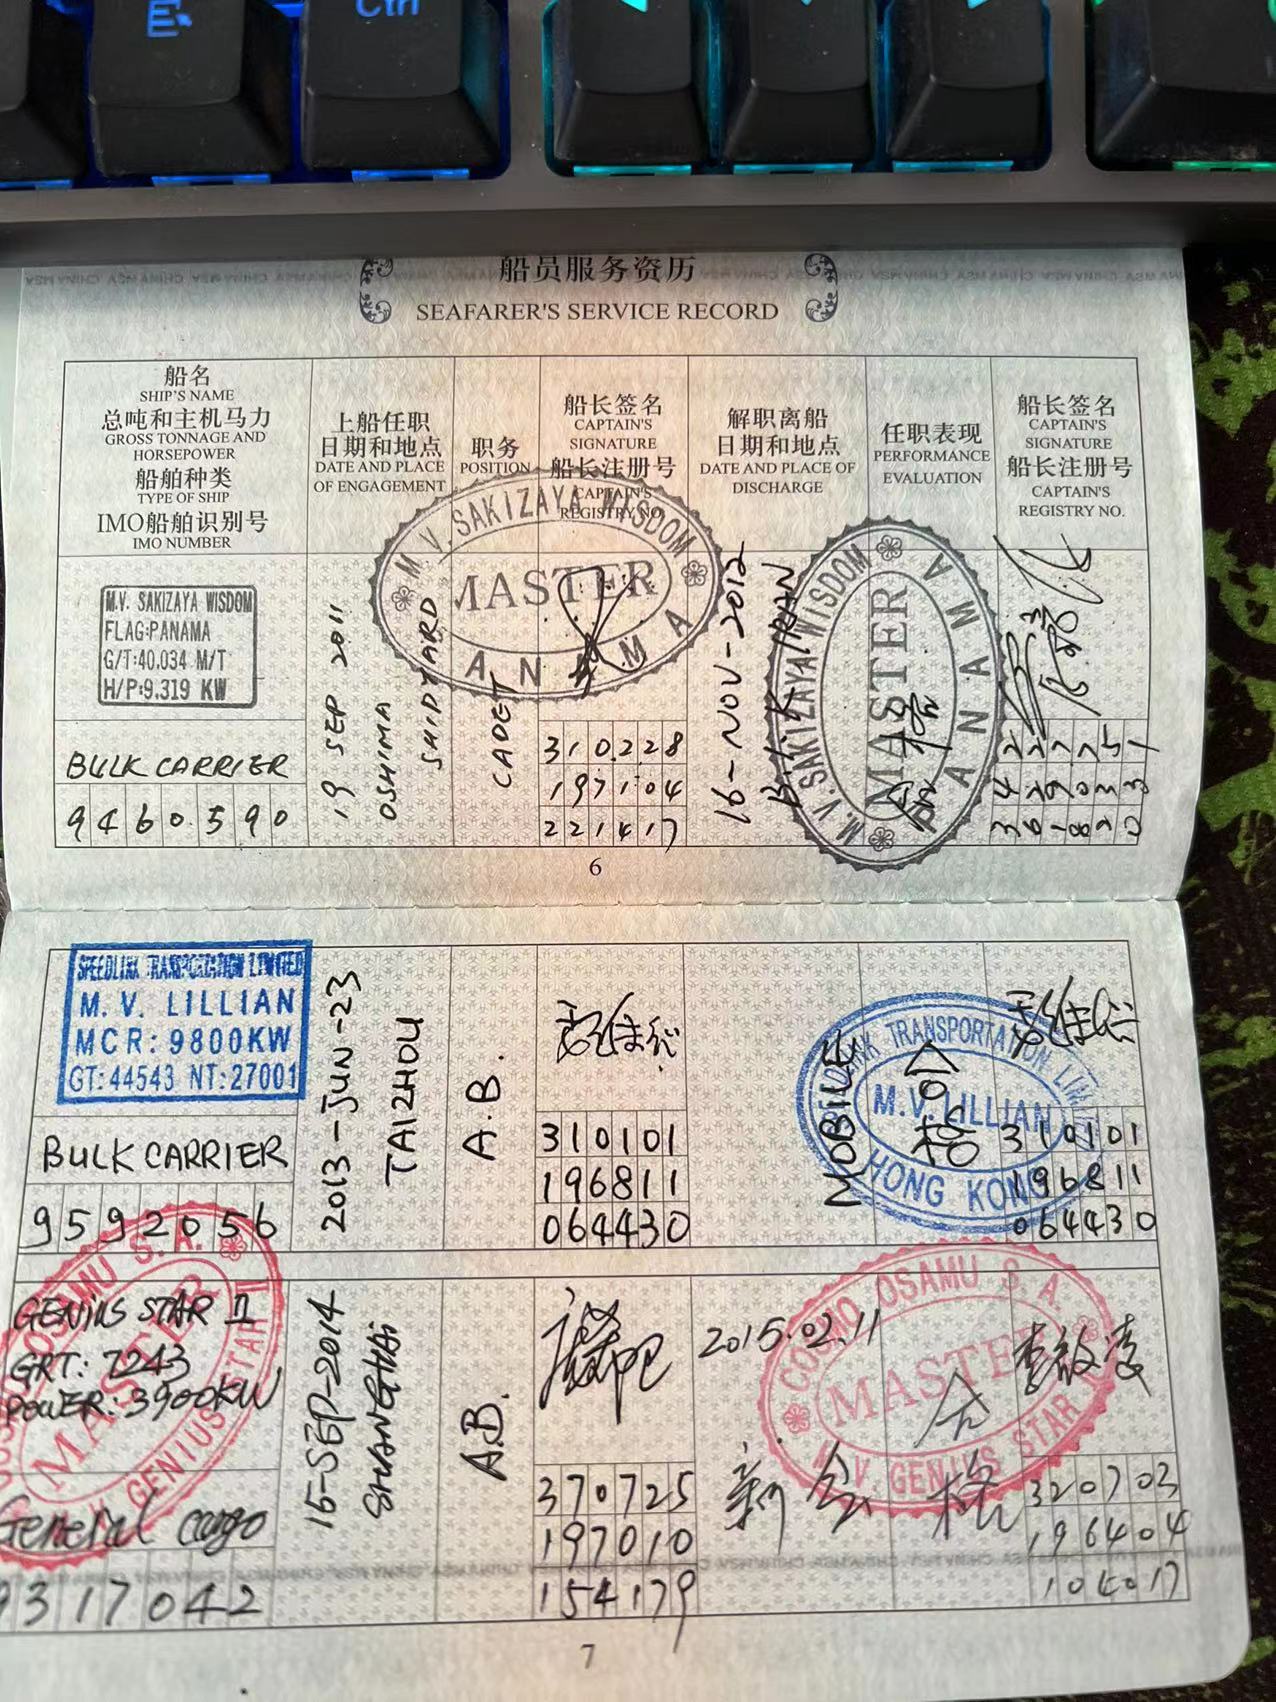 Ctrl
船员服务资历
SEAFARER'S SERVICE RECORD
船名
SHIP'S NAME
总吨和主机马力
GROSS TONNAGE AND
HORSEPOWER
船舶种类
TYPE OF SHIP
IMO船舶识别号
IMO NUMBER
上船任职
日期和地点
DATE AND PLACE
OF ENGAGEMENT
职务
POSITION
船长签名
CAPTAIN'S
SIGNATURE
船长注册号
CAPTAIN'S
REGISTRY NO.
解职离船
日期和地点
DATE AND PLACE OF
DISCHARGE
任职表现
PERFORMANCE
EVALUATION
船长签名
CAPTAIN'S
SIGNATURE
船长注册号
CAPTAIN'S
REGISTRY NO.
M.V. SAKIZAYA WISDOM
FLAG:PANAMA
G/T:40.034 M/T
H/P:9.319 KW
BULK CARRIER
9460590
19 SEP 2011
OSHIMA
SHIPYARD
CADET
M.V. SAKIZAYA WISDOM
MASTER
PANAMA
310228
197104
221417
16-NOV-2012
M.V. SAKIZAYA WISDOM
MASTER
PANAMA
6
SPEEDLINK TRANSPORTATION LIMITED
M.V. LILLIAN
MCR: 9800KW
GT:44543 NT:27001
BULK CARRIER
9592056
2013-JUN-23
TAIZHOU
A.B.
310101
196811
064430
MOBILE
TRANSPORTATION
M.V. LILLIAN
HONG KONG
合格
310101
196811
064430
GENIUS STAR II
GRT: 7243
POWER: 3900KW
General cargo
9317042
OSAMU S.A.
MASTER
GENIUS STAR II
15-SEP-2014
SHANGHAI
A.B.
370725
197010
154179
2015.02.11
新会
COSMO OSAMU S.A.
MASTER
M.V. GENIUS STAR
合格
320703
196404
7